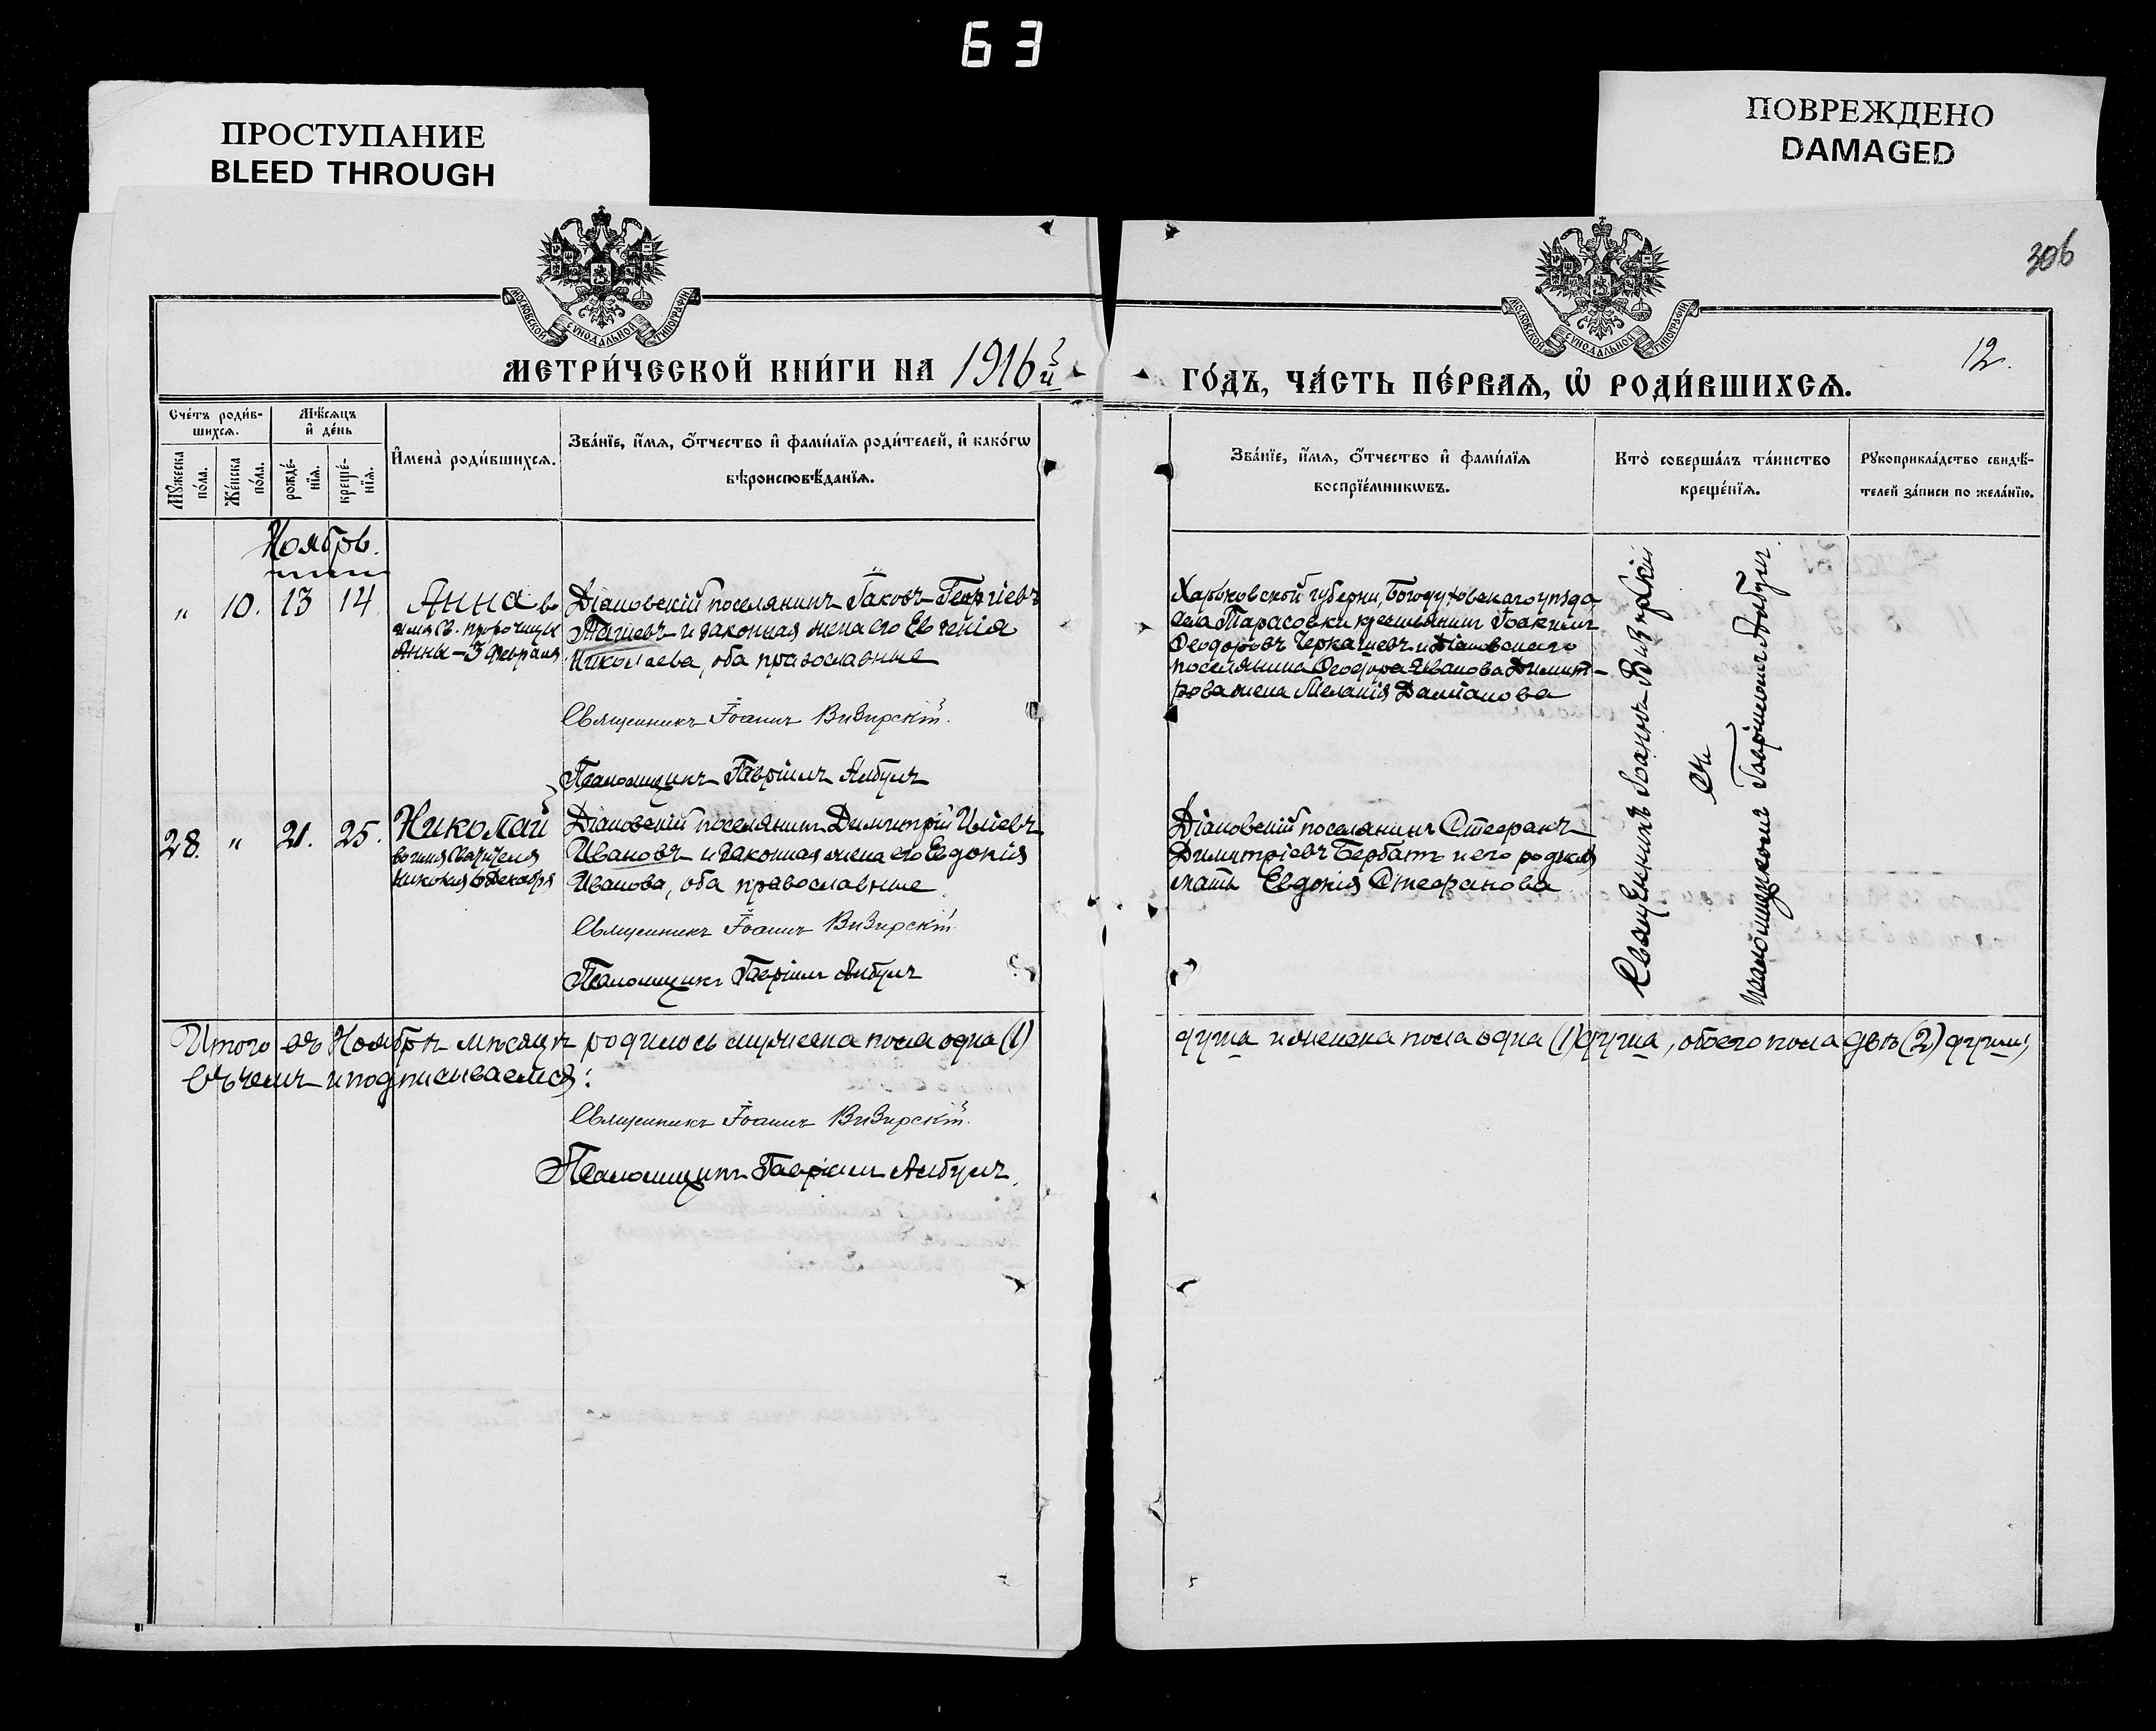 63
ПРОСТУПАНИЕ
BLEED THROUGH
ПОВРЕЖДЕНО
DAMAGED
306
МОСКОВСКОЙ СѴНОДАЛЬНОЙ ТИПОГРАФІИ
МОСКОВСКОЙ СѴНОДАЛЬНОЙ ТИПОГРАФІИ
МЕТРИ́ЧЕСКОЙ КНИ́ГИ НА 1916й
ГО́ДЪ, ЧА́СТЬ ПЕ́РВАЯ, Ѡ҆ РОДИ́ВШИХСЯ.
12.
Сче́тъ роди́в-
шихся.
Мѣ́сяцъ
и҆ де́нь
Мꙋ́жеска
по́ла.
Же́нска
по́ла.
рожде́-
нїя.
креще́-
нїя.
И҆мена̀ роди́вшихся.
Зва́нїе, и҆́мя, ѻ҆́тчество и҆ фами́лїя роди́телей, и҆ како́гѡ
вѣроисповѣ́данїя.
Зва́нїе, и҆́мя, ѻ҆́тчество и҆ фами́лїя
воспрїе́мникѡвъ.
Кто̀ соверша́лъ та́инство
креще́нїя.
Рꙋкоприкла́дство свидѣ́-
телей за́писи по жела́нїю.
Ноябрь.
" 10. 13 14.
Анна во
имя Св. пророчицы
Анны - 3 Февраля
Діановскій поселянинъ Іаковъ Георгіевъ
и законная жена его Евгенія
Николаева, оба православные
Священникъ Іоаннъ Визирскій.
Псаломщикъ Гавріилъ Албулъ
Харьковской губерни, Богодуховскаго уѣзда,
села Тарасовки крестьянинъ Іоакимъ
Ѳеодоровъ Черкашевъ и Діановскаго
поселянина Ѳеодора Иванова Димит-
рова жена Меланія Даміанова
Священникъ Іоаннъ Визирскій
съ
псаломщикомъ Гавріиломъ Албулъ.
28. " 21. 25.
Николай
во имя Святителя
Николая 6 Декабря
Діановскій поселянинъ Димитрій Иліевъ
Ивановъ и законная жена его Евдокія
Иванова, оба православные
Священникъ Іоаннъ Визирскій.
Псаломщикъ Гавріилъ Албулъ
Діановскій поселянинъ Стефанъ
Димитріевъ Бербатъ и его родная
мать Евдокія Стефанова
Итого въ Ноябрѣ мѣсяцѣ родилось мужеска пола одна (1)
душа и женска пола одна (1) душа, обоего пола двѣ (2) души,
въ чемъ и подписываемся:
Священникъ Іоаннъ Визирскій.
Псаломщикъ Гавріилъ Албулъ.